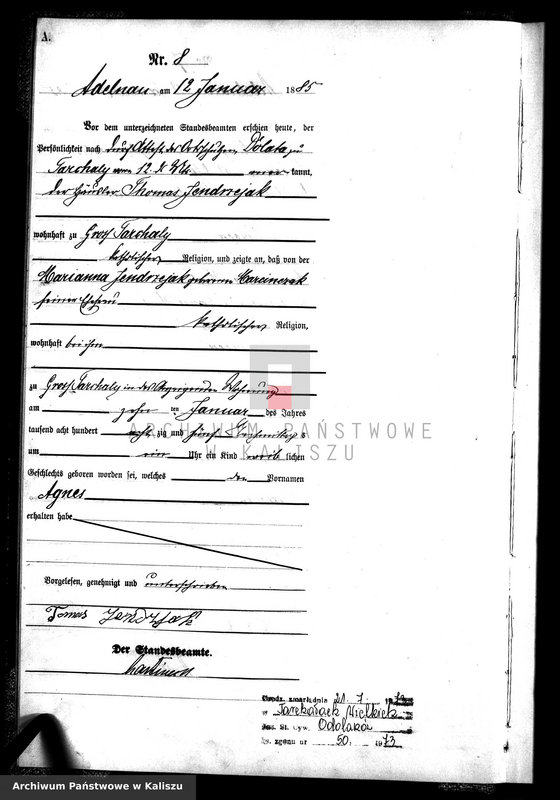 A.
Nr. 8
Adelnau am 12 Januar 1885
Vor dem unterzeichneten Standesbeamten erschien heute, der
Persönlichkeit nach durch Attest des Ortsschulzen Dolata zu
Tarchaly vom 12 d. Mts. kannt,
der Häusler Thomas Jendrzejak
wohnhaft zu Groß Tarchaly
katholischer Religion, und zeigte an, daß von der
Marianna Jendrzejak geborenen Marciniak
seiner Ehefrau
katholischer Religion,
wohnhaft bei ihm
zu Groß Tarchaly in des Anzeigenden Wohnung
am zehn ten Januar des Jahres
tausend acht hundert acht zig und fünf Nachmittags
um ein Uhr ein Kind weib lichen
Geschlechts geboren worden sei, welches den Vornamen
Agnes
erhalten habe
Vorgelesen, genehmigt und unterschrieben
Tomas
Der Standesbeamte.
ARCHIWUM PAŃSTWOWE
W KALISZU
Urodz. zmarła dnia 21. 7. 1973
w Tarchałach Wielkich
St. Cyw. Odolanów
zgonu nr 50. 1973
Archiwum Państwowe w Kaliszu